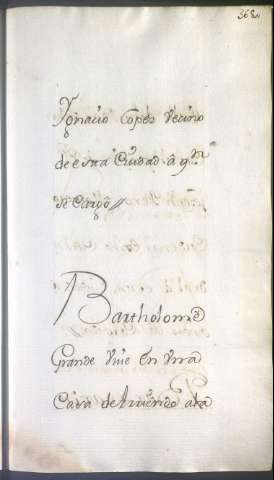 368
Ygnacio Lopes Vecino
de esta Ciudad â qn
se Cargô
Bartholome
Grande Vive En Vna
Casa de